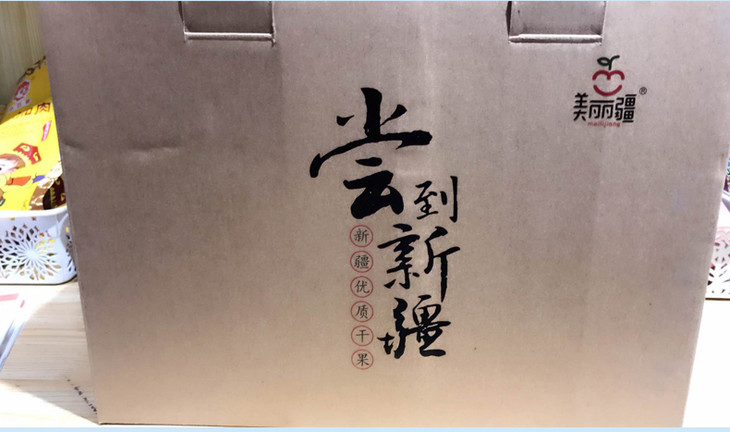 美丽疆®
meilijiang
尝到新疆
新疆优质干果
肉